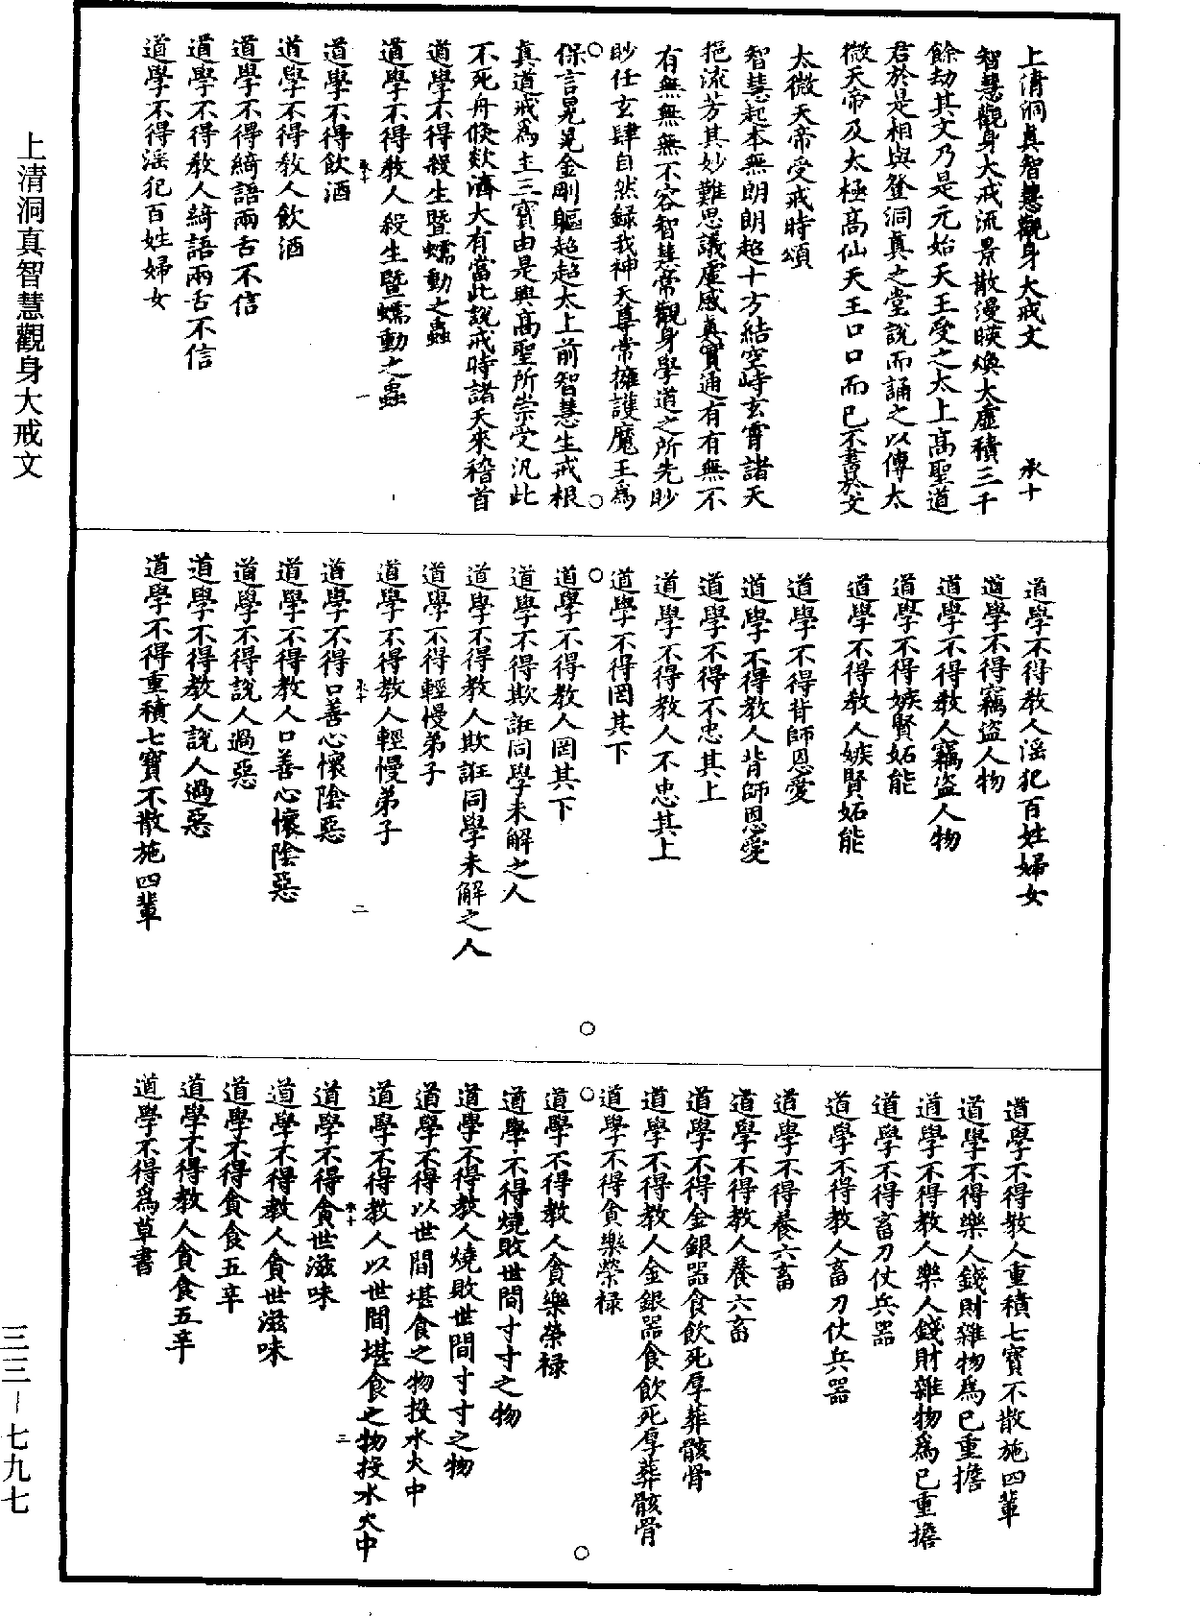 上清洞真智慧觀身大戒文　承十
智慧觀身大戒流景散漫暎煥太虛積三千
餘劫其文乃是元始天王受之太上高聖道
君於是相與登洞真之堂說而誦之以傳太
微天帝及太極高仙天王口口而已不書於文
太微天帝受戒時頌
智慧起本無朗朗超十方結空峙玄霄諸天
挹流芳其妙難思議虛感真實通有有無不
有無無無不容智慧常觀身學道之所先眇
眇任玄肆自然錄我神天尊常擁護魔王為
保言晃晃金剛軀超超太上前智慧生戒根
真道戒為主三寶由是興高聖所崇受汎此
不死舟倏欻濟大有當此說戒時諸天來稽首
道學不得殺生暨蠕動之蟲
道學不得教人殺生暨蠕動之蟲
承十　一
道學不得飲酒
道學不得教人飲酒
道學不得綺語兩舌不信
道學不得教人綺語兩舌不信
道學不得淫犯百姓婦女
道學不得教人淫犯百姓婦女
道學不得竊盜人物
道學不得教人竊盜人物
道學不得嫉賢妬能
道學不得教人嫉賢妬能
道學不得背師恩愛
道學不得教人背師恩愛
道學不得不忠其上
道學不得教人不忠其上
道學不得罔其下
道學不得教人罔其下
道學不得欺誑同學未解之人
道學不得教人欺誑同學未解之人
道學不得輕慢弟子
道學不得教人輕慢弟子
承十　二
道學不得口善心懷陰惡
道學不得教人口善心懷陰惡
道學不得說人過惡
道學不得教人說人過惡
道學不得重積七寶不散施四輩
道學不得教人重積七寶不散施四輩
道學不得樂人錢財雜物為已重擔
道學不得教人樂人錢財雜物為已重擔
道學不得畜刀仗兵器
道學不得教人畜刀仗兵器
道學不得養六畜
道學不得教人養六畜
道學不得金銀器食飲死厚葬骸骨
道學不得教人金銀器食飲死厚葬骸骨
道學不得貪樂榮祿
道學不得教人貪樂榮祿
道學不得燒敗世間寸寸之物
道學不得教人燒敗世間寸寸之物
道學不得以世間堪食之物投水火中
道學不得教人以世間堪食之物投水火中
承十　三
道學不得貪世滋味
道學不得教人貪世滋味
道學不得貪食五辛
道學不得教人貪食五辛
道學不得為草書
上清洞真智慧觀身大戒文
三三－七九七